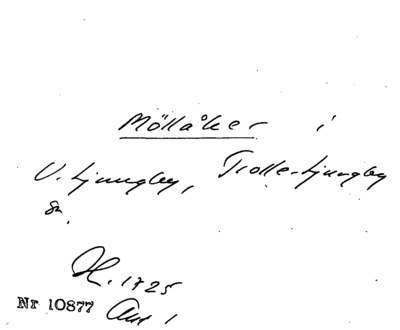 Möllåker i
V. Ljungby, Trolle-Ljungby
Sn.
1725
Nr 10877 Aut 1